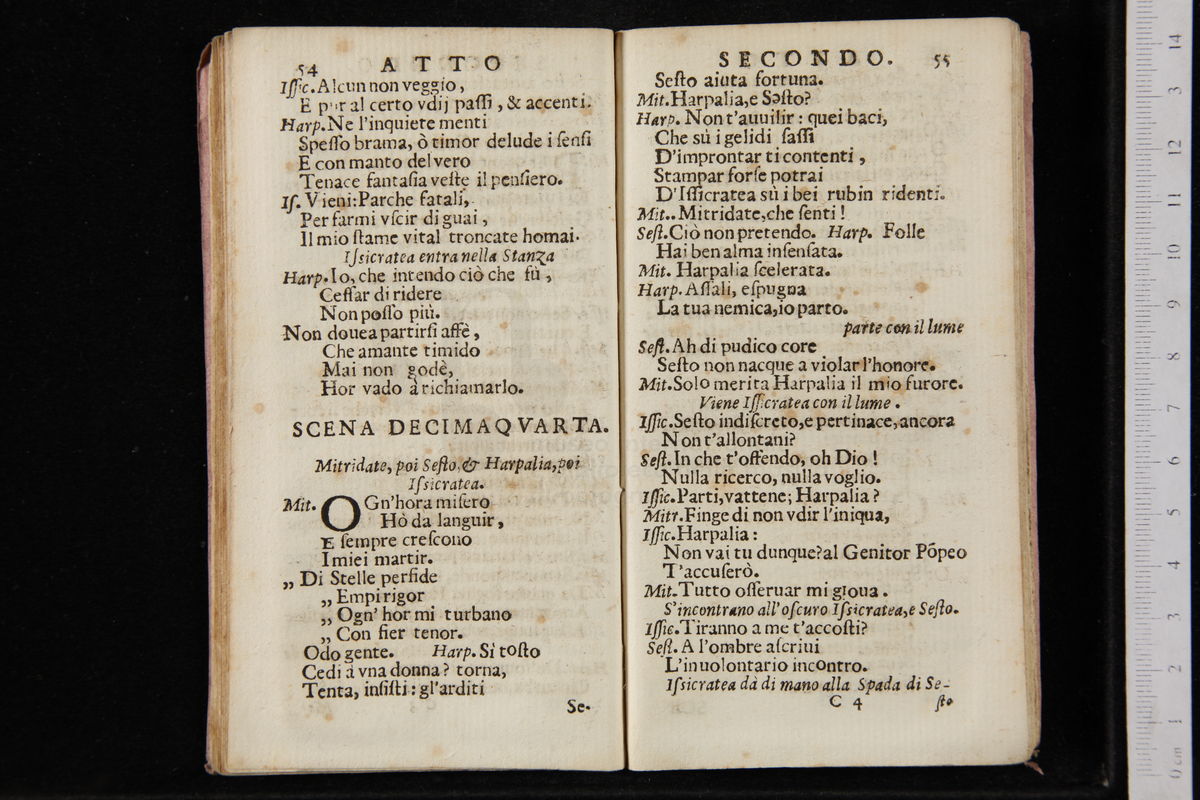 54 ATTO
Iſſic. Alcun non veggio,
E pur al certo vdij paſſi, & accenti.
Harp. Ne l'inquiete menti
Speſſo brama, ò timor delude i ſenſi
E con manto del vero
Tenace fantaſia veſte il penſiero.
Iſ. Vieni: Parche fatali,
Per farmi vſcir di guai,
Il mio ſtame vital troncate homai.
Iſsicratea entra nella Stanza
Harp. Io, che intendo ciò che fù,
Ceſſar di ridere
Non poſſo più.
Non douea partirſi affè,
Che amante timido
Mai non godè,
Hor vado à richiamarlo.
SCENA DECIMAQVARTA.
Mitridate, poi Seſto, & Harpalia, poi
Iſsicratea.
Mit. OGn'hora miſero
Hò da languir,
E ſempre creſcono
I miei martir.
„ Di Stelle perfide
„ Empi rigor
„ Ogn' hor mi turbano
„ Con fier tenor.
Odo gente. Harp. Si toſto
Cedi à vna donna? torna,
Tenta, inſiſti: gl'arditi
Se-
SECONDO. 55
Seſto aiuta fortuna.
Mit. Harpalia, e Sǝſto?
Harp. Non t'auuilir: quei baci,
Che sù i gelidi ſaſſi
D'improntar ti contenti,
Stampar forſe potrai
D'Iſſicratea sù i bei rubin ridenti.
Mit.. Mitridate, che ſenti!
Seſt. Ciò non pretendo. Harp. Folle
Hai ben alma inſenſata.
Mit. Harpalia ſcelerata.
Harp. Aſſali, eſpugna
La tua nemica, io parto.
parte con il lume
Seſt. Ah di pudico core
Seſto non nacque a violar l'honore.
Mit. Solo merita Harpalia il mio furore.
Viene Iſſicratea con il lume.
Iſſic. Seſto indiſcreto, e pertinace, ancora
Non t'allontani?
Seſt. In che t'offendo, oh Dio!
Nulla ricerco, nulla voglio.
Iſſic. Parti, vattene; Harpalia?
Mitr. Finge di non vdir l'iniqua,
Iſſic. Harpalia:
Non vai tu dunque? al Genitor Põpeo
T'accuſerò.
Mit. Tutto oſſeruar mi gioua.
S'incontrano all'oſcuro Iſsicratea, e Seſto.
Iſſic. Tiranno a me t'accoſti?
Seſt. A l'ombre aſcriui
L'inuolontario incontro.
Iſsicratea dà di mano alla Spada di Se-
C 4 ſto